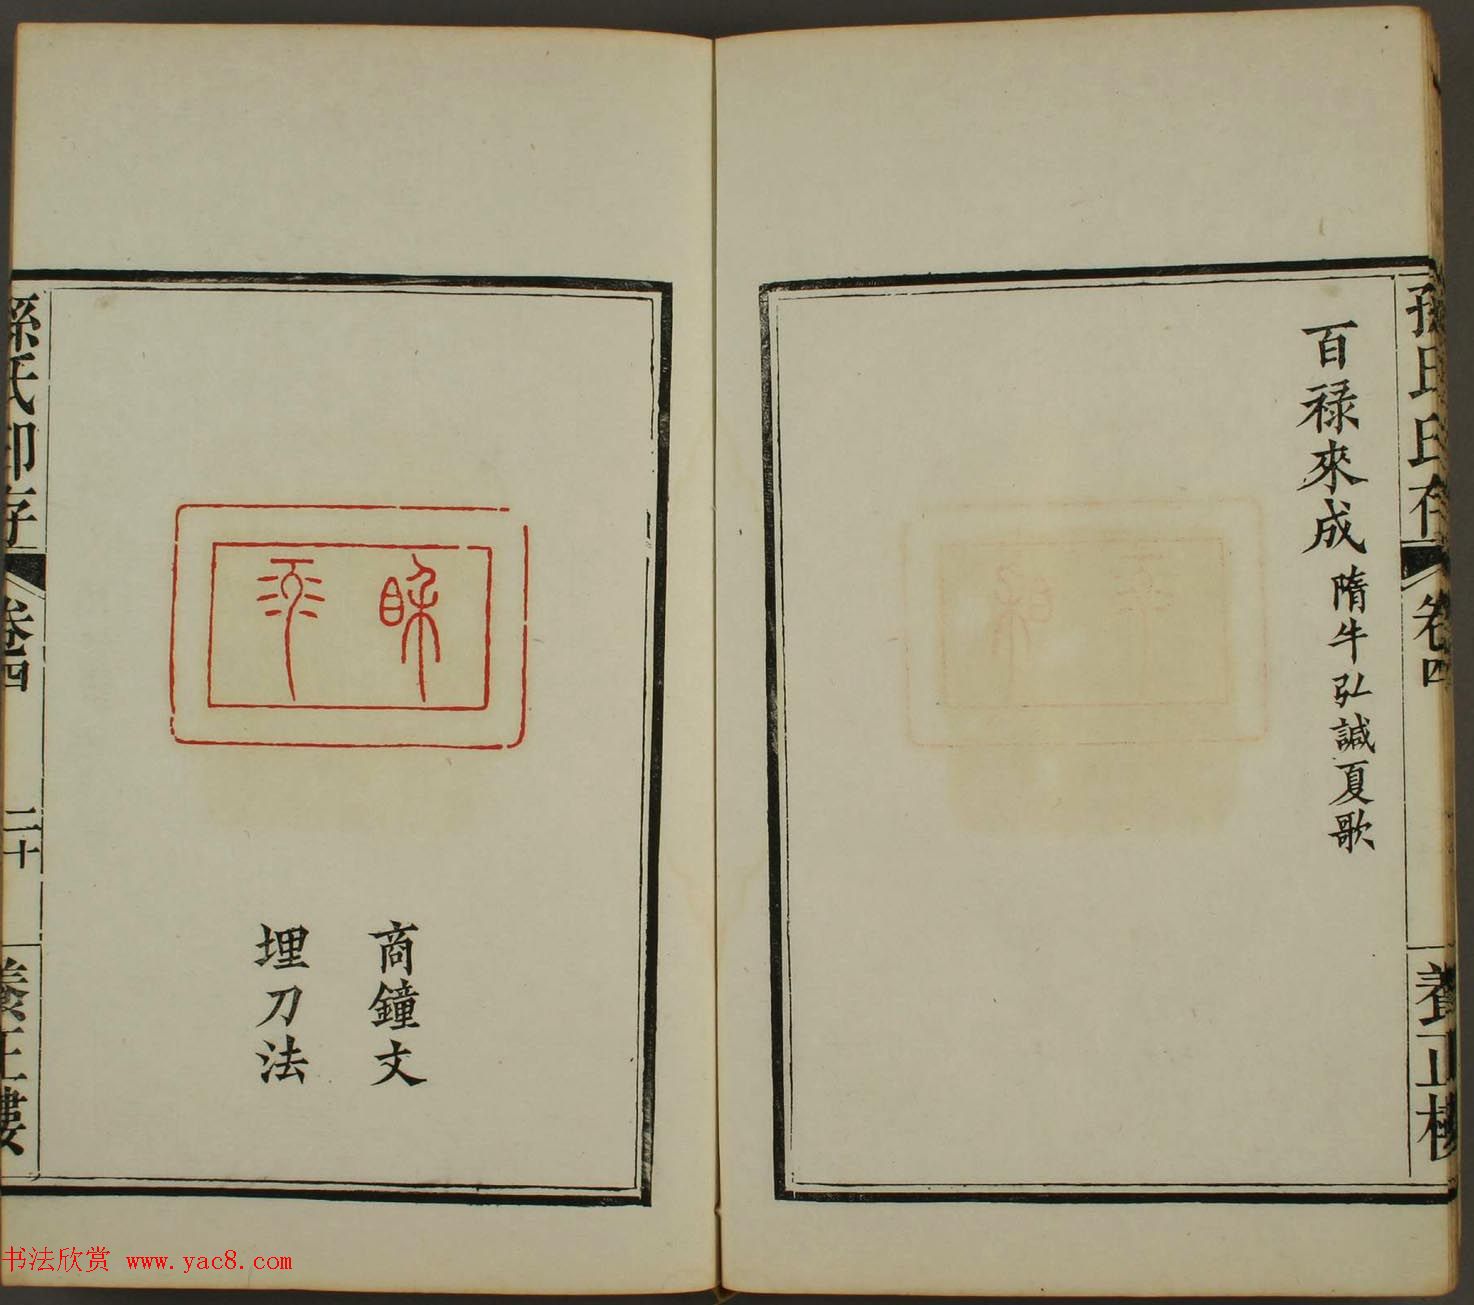 百禄來成 隋牛弘諴夏歌
孫氏印存 卷四
養正樓
商鐘文
埋刀法
孫氏印存 卷四 二十
養正樓
书法欣赏 www.yac8.com